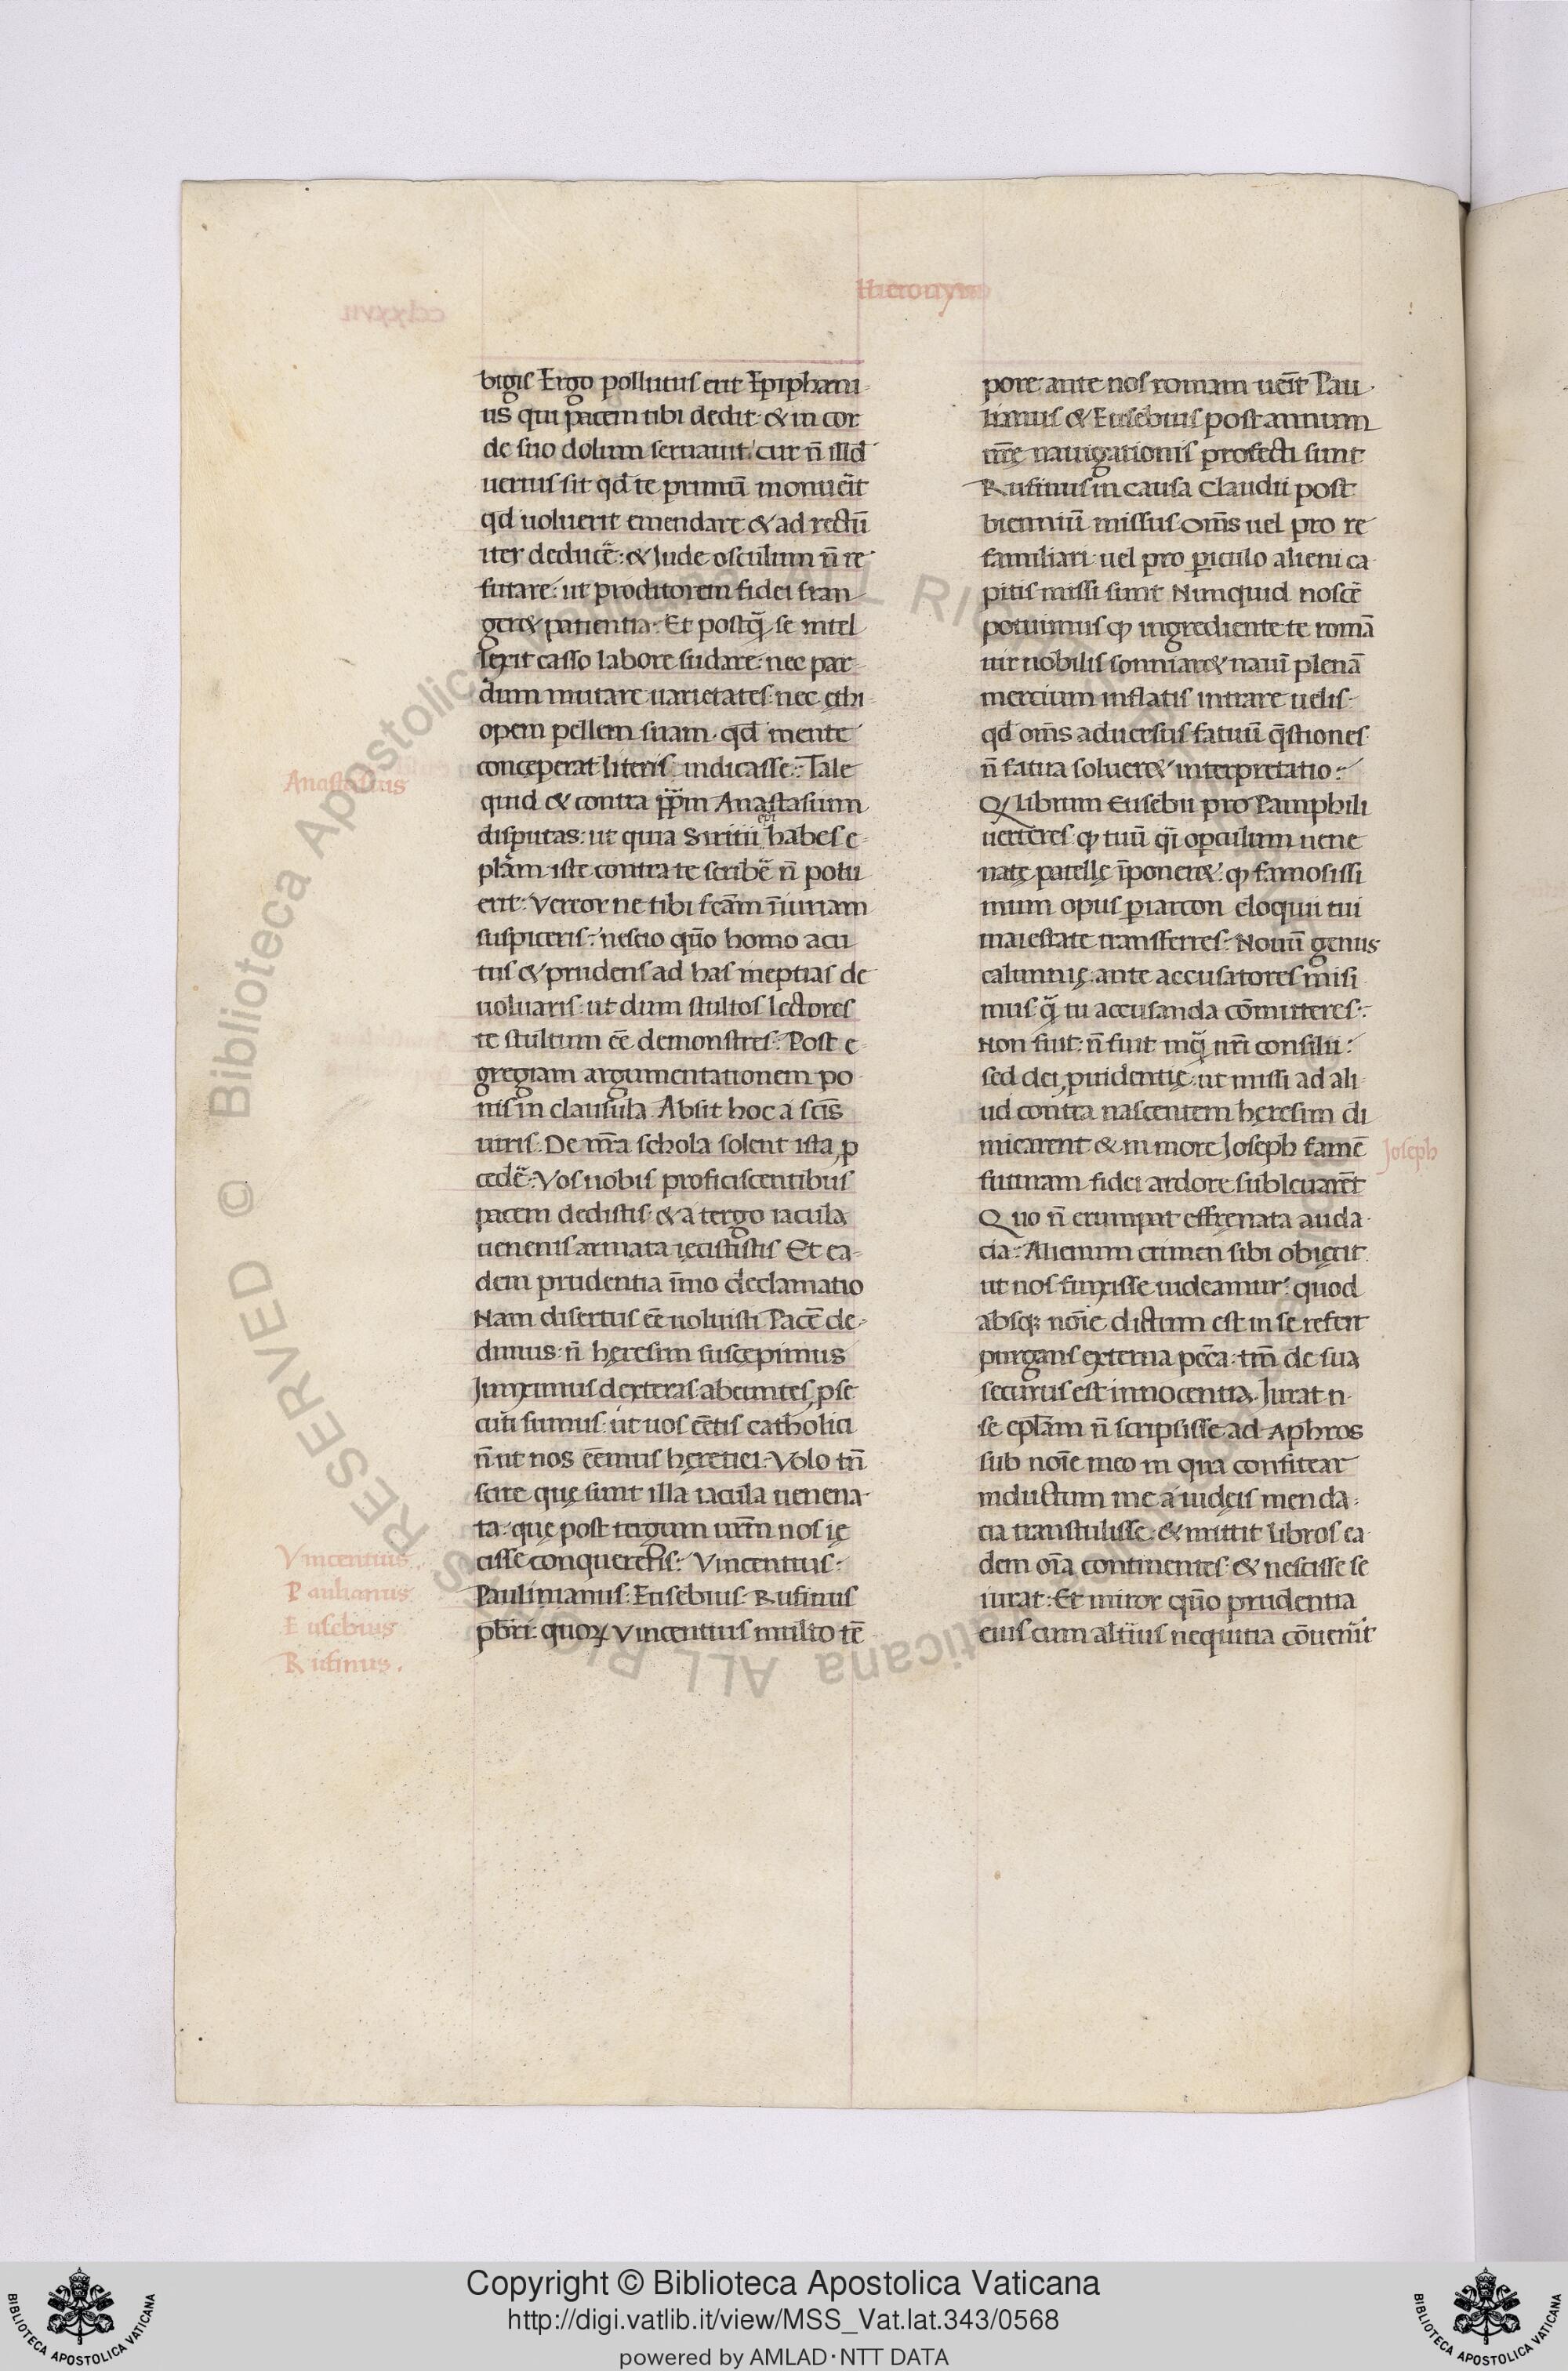 Hieronymo
bigis Ergo pollutus erit Epiphani-
us qui pacem tibi dedit· & in cor
de suo dolum seruauit· cur n̄ illđ
uerius sit qđ te primū monuerit
qđ uoluerit emendare & ad rectū
iter deducē· & Iude osculum n̄ re
futare· ut proditorem fidei fran
ger& patientia· Et postq̄ se intel
lexit casso labore sudare· nec par
dum mutare uarietates· nec ethi
opem pellem suam· qđ mente
conceperat literis indicasse· Tale
Anastasius
quid & contra pp̄m Anastasium
disputas· ut quia Siritii epi habes e
plām iste contra te scribē n̄ potu
erit· Vereor ne tibi fcām īiuriam
suspiceris· nescio quō homo acu
tus & prudens ad has ineptias de
uoluaris· ut dum stultos lectores
te stultum eē demonstres· Post e
gregiam argumentationem po
nis in clausula Absit hoc a scīs
uiris· De nrā schola solent ista ꝓ
cedē· Vos nobis proficiscentibus
pacem dedistis· & a tergo iacula
uenenis armata ięcististis Et ea-
dem prudentia īmo declamatio
Nam disertus eē uoluisti Pacē de-
dimus· n̄ hęresim suscepimus
Iunximus dexteras· abeuntes ꝓse
cuti sumus· ut uos eētis catholici
n̄ ut nos eēmus hęretici· Volo tn̄
scire quę sunt illa iacula uenena-
ta· quę post tergum urm̄ nos ię
cisse conquereris· Vincentius·
Paulinianus· Eusebius· Rufinus
pbr̄i· quoꝝ Vincentius multo tē
Vincentius
Paulianus
Eusebius
Rufinus.
pore ante nos romam ueīt Pau
linianus & Eusebius post annum
nrē nauigationis profecti sunt
Rufinus in causa Claudii post
bienniū missus om̄s uel pro re
familiari· uel pro ꝑiculo alieni ca
pitis missi sunt Nunquid noscē
potuimus ꝙ ingrediente te romā
uir nobilis somniar& nauī plenā
mercium inflatis intrare uelis·
qđ om̄s aduersus fatuū q̄stiones
n̄ fatua soluer& interpretatio·
Q librum Eusebii pro Pamphili
uerteres· ꝙ tuū q̄i opculum uene
natę patellę īponer&· ꝙ famosissi
mum opus periarcon eloquii tui
maiestate transferres· Nouū genus
calumnię· ante accusatores misi
mus q̄ tu accusanda cōmitteres·
Non fuit· n̄ fuit inq̄ nrī consilii·
sed dei ꝓuidentię· ut missi ad ali
ud contra nascentem hęresim di
micarent & in more Ioseph famē
Ioseph
futuram fidei ardore subleuarēt
Quo n̄ erumpat effrenata auda
cia· Alienum crimen sibi obięcit
ut nos finxisse uideamur· quod
absqꝫ noīe dictum est in se refert
purgans externa peccā· tm̄ de sua
securus est innocentia· Iurat n·
se eplām n̄ scripsisse ad Aphros
sub noīe meo in qua confitear
inductum me a iudęis menda-
cia transtulisse· & mittit libros ea
dem oīa continentes· & nescisse se
iurat· Et miror quō prudentia
eius cum altius nequitia cōuenit
© Biblioteca Apostolica Vaticana ALL RIGHTS RESERVED
Copyright © Biblioteca Apostolica Vaticana
http://digi.vatlib.it/view/MSS_Vat.lat.343/0568
powered by AMLAD·NTT DATA
BIBLIOTECA APOSTOLICA VATICANA
BIBLIOTECA APOSTOLICA VATICANA